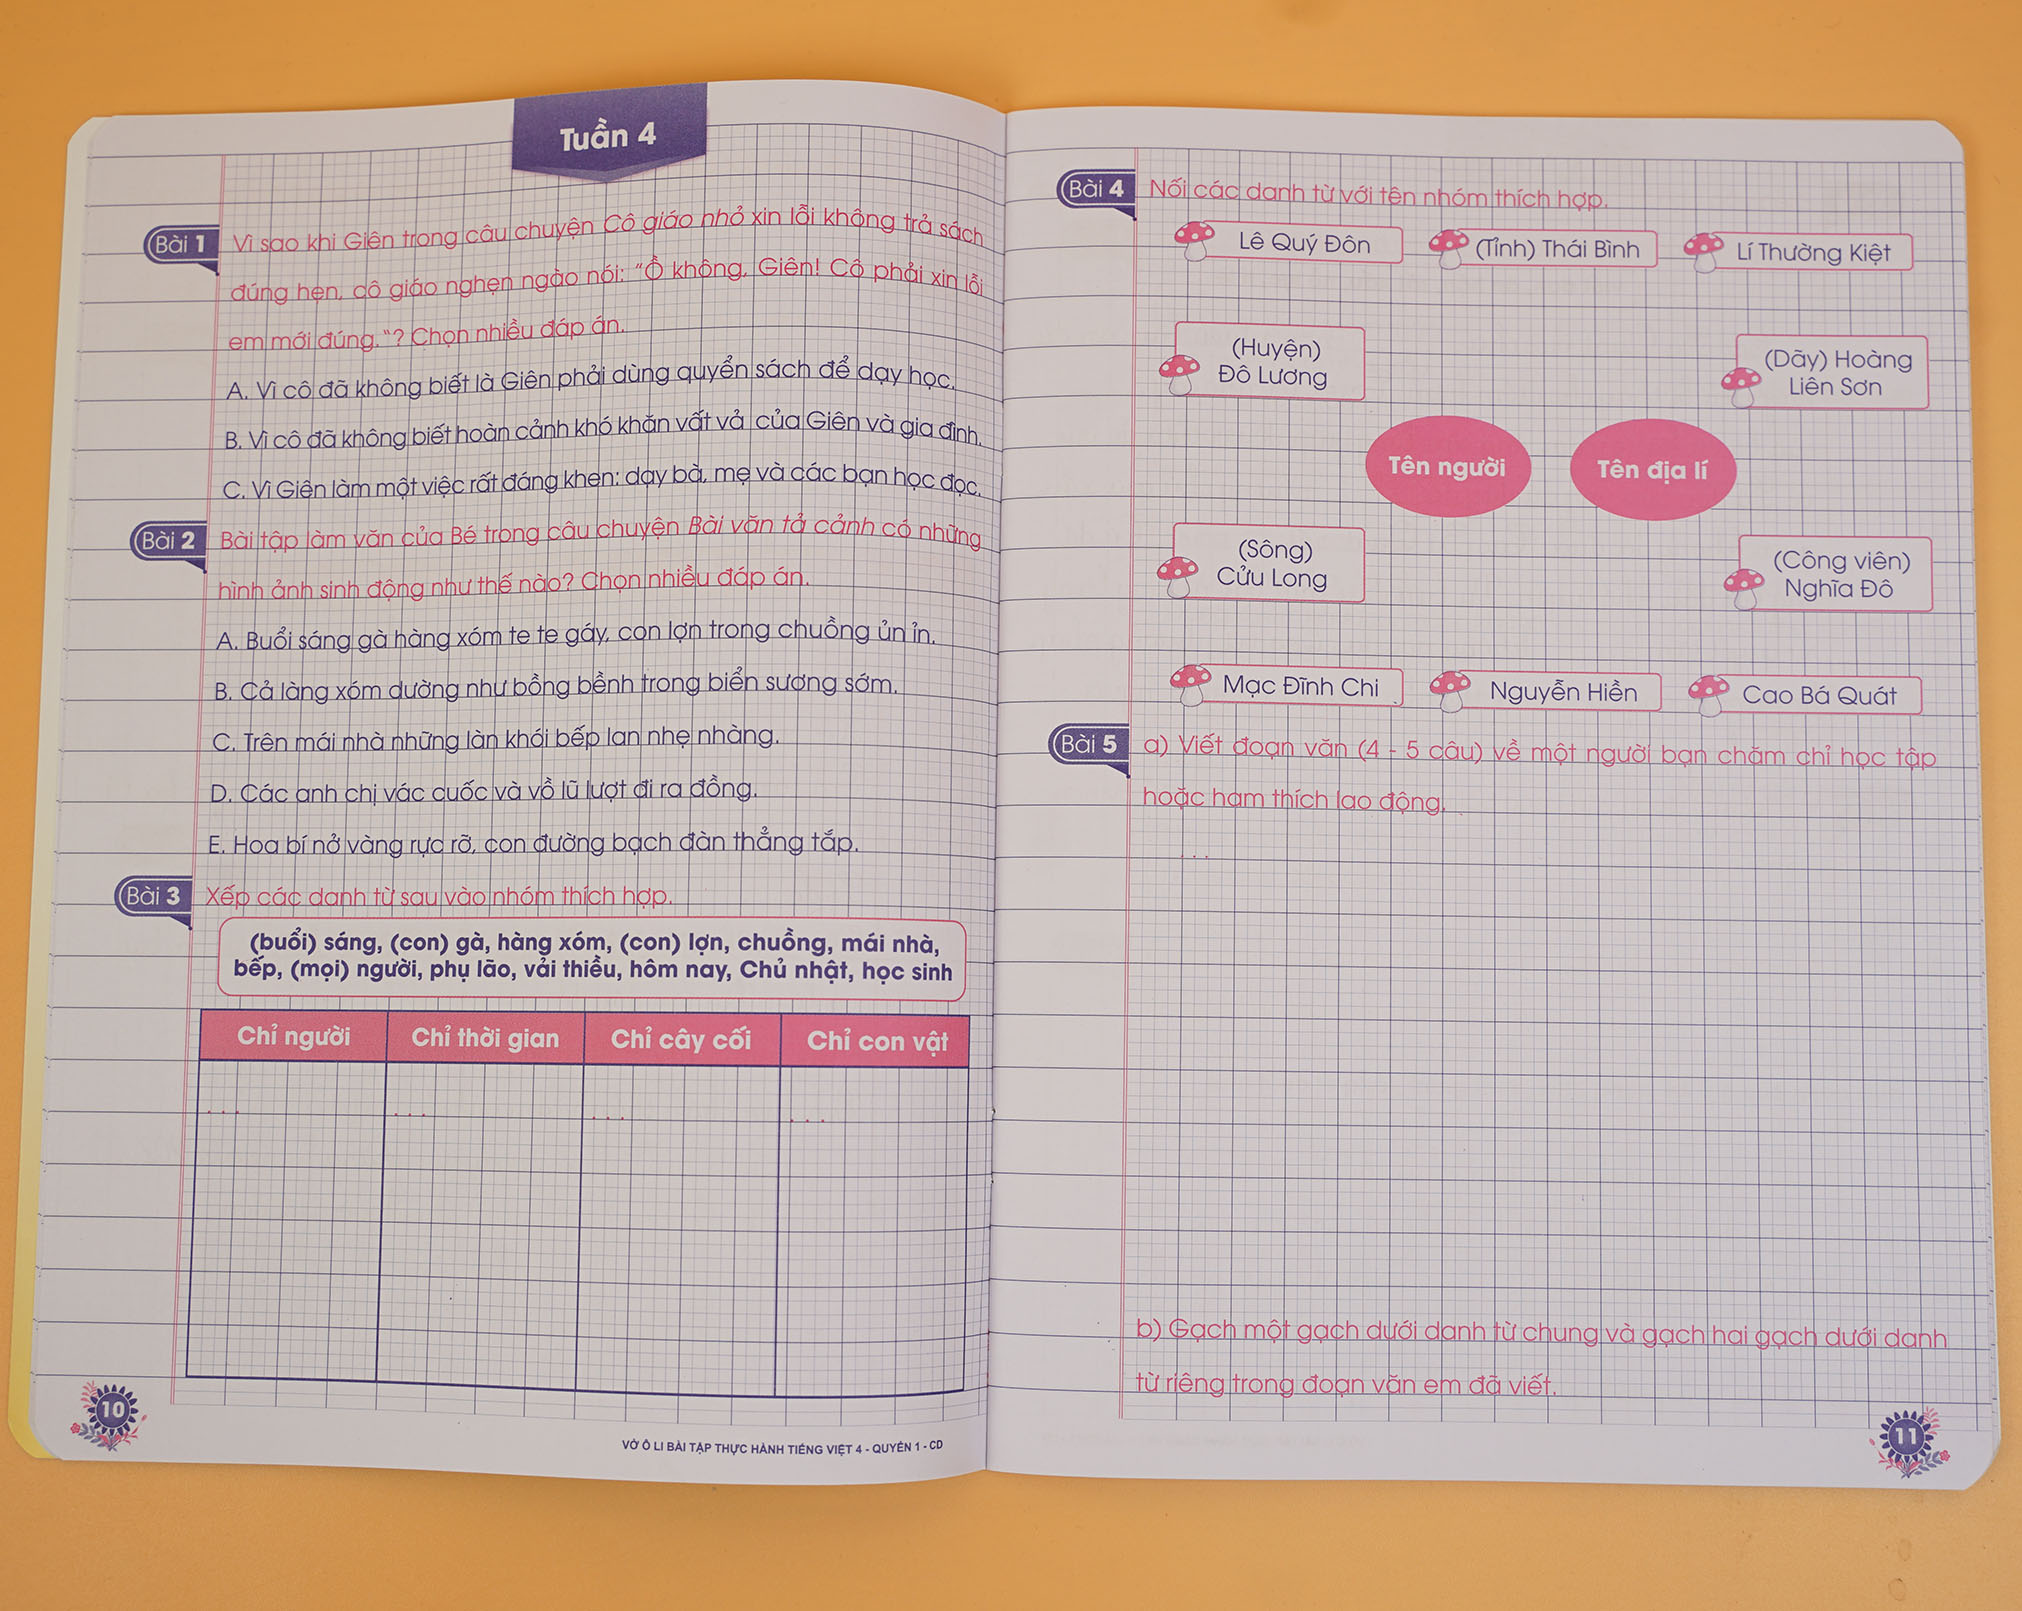 Tuần 4
Bài 1 Vì sao khi Giên trong câu chuyện Cô giáo nhỏ xin lỗi không trả sách
đúng hẹn, cô giáo nghẹn ngào nói: "Ồ không, Giên! Cô phải xin lỗi
em mới đúng."? Chọn nhiều đáp án.
A. Vì cô đã không biết là Giên phải dùng quyển sách để dạy học.
B. Vì cô đã không biết hoàn cảnh khó khăn vất vả của Giên và gia đình.
C. Vì Giên làm một việc rất đáng khen: dạy bà, mẹ và các bạn học đọc.
Bài 2 Bài tập làm văn của Bé trong câu chuyện Bài văn tả cảnh có những
hình ảnh sinh động như thế nào? Chọn nhiều đáp án.
A. Buổi sáng gà hàng xóm te te gáy, con lợn trong chuồng ủn ỉn.
B. Cả làng xóm dường như bồng bềnh trong biển sương sớm.
C. Trên mái nhà những làn khói bếp lan nhẹ nhàng.
D. Các anh chị vác cuốc và vồ lũ lượt đi ra đồng.
E. Hoa bí nở vàng rực rỡ, con đường bạch đàn thẳng tắp.
Bài 3 Xếp các danh từ sau vào nhóm thích hợp.
(buổi) sáng, (con) gà, hàng xóm, (con) lợn, chuồng, mái nhà,
bếp, (mọi) người, phụ lão, vải thiều, hôm nay, Chủ nhật, học sinh
Chỉ người Chỉ thời gian Chỉ cây cối Chỉ con vật
... ... ... ...
10
VỞ Ô LI BÀI TẬP THỰC HÀNH TIẾNG VIỆT 4 - QUYỂN 1 - CD
Bài 4 Nối các danh từ với tên nhóm thích hợp.
Lê Quý Đôn (Tỉnh) Thái Bình Lí Thường Kiệt
(Huyện)
Đô Lương
(Dãy) Hoàng
Liên Sơn
Tên người Tên địa lí
(Sông)
Cửu Long
(Công viên)
Nghĩa Đô
Mạc Đĩnh Chi Nguyễn Hiền Cao Bá Quát
Bài 5 a) Viết đoạn văn (4 - 5 câu) về một người bạn chăm chỉ học tập
hoặc ham thích lao động.
...
b) Gạch một gạch dưới danh từ chung và gạch hai gạch dưới danh
từ riêng trong đoạn văn em đã viết.
11